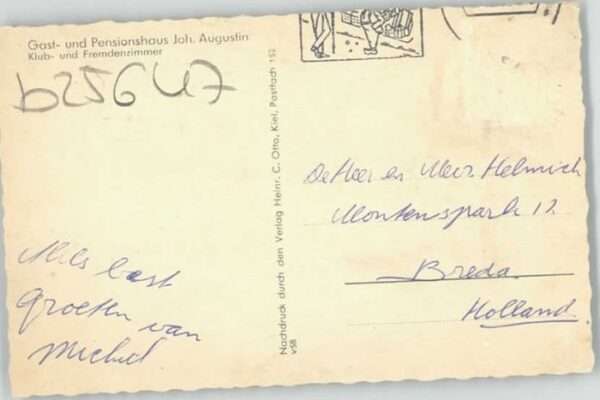 Gast- und Pensionshaus Joh. Augustin
Klub- und Fremdenzimmer
b25647
Nachdruck durch den Verlag Heinr. C. Otto, Kiel, Postfach 153
VSB
De Heer en Mevr. Helmich
Montenspark 12
Breda
Holland.
Alles best
Groeten van
Michel